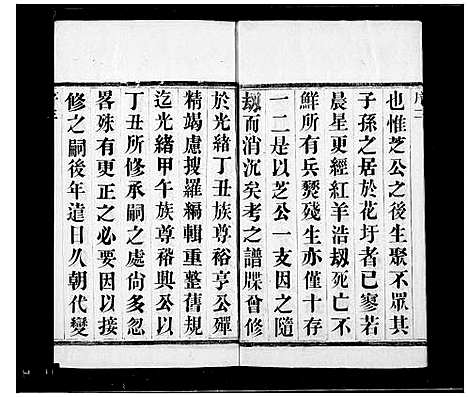 也惟芝公之後生聚不眾其
子孫之居於花圩者已寥若
晨星更經紅羊浩刼死亡不
鮮所有兵燹殘生亦僅十存
一二是以芝公一支因之隨
刼而消沉矣考之譜牒曾修
於光緒丁丑族尊裕亨公殫
精竭慮搜羅編輯重整舊規
迄光緒甲午族尊裕興公以
丁丑所修承嗣之處尙多忽
畧殊有更正之必要因以接
修之嗣後年遠日久朝代變